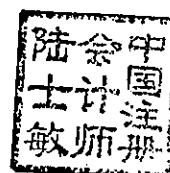 中国注册
会计师
陆士敏